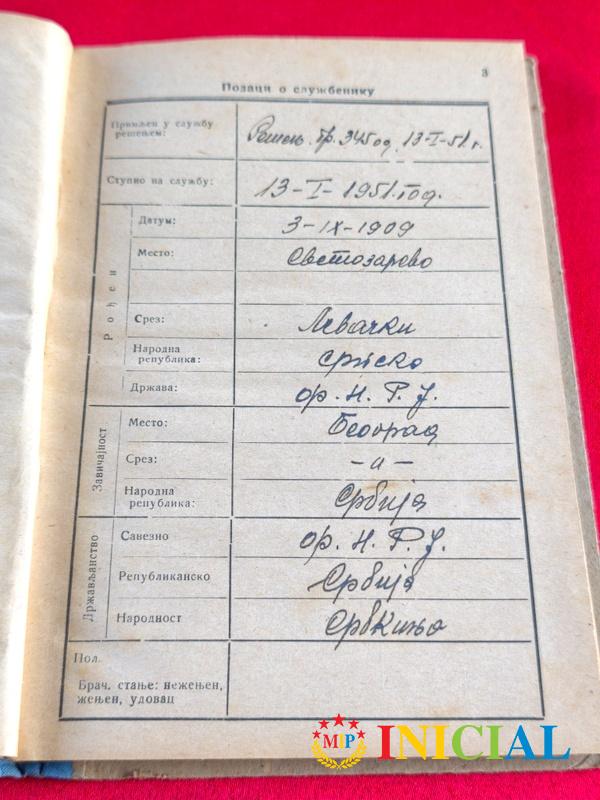 3
Подаци о службенику
Примљен у службу решењем:
Решењ. бр. 345 од 13-I-51 г.
Ступио на службу:
13-I-1951. год.
Рођен
Датум:
3-IX-1909
Место:
Светозарево
Срез:
Левачки
Народна република:
српско
Држава:
ф. Н. Р. Ј.
Завичајност
Место:
Београд
Срез:
-а-
Народна република:
Србија
Држављанство
Савезно
ф. Н. Р. Ј.
Републиканско
Србија
Народност
Србкиња
Пол.
Брач. стање: нежењен,
жењен, удовац
MIP INICIAL